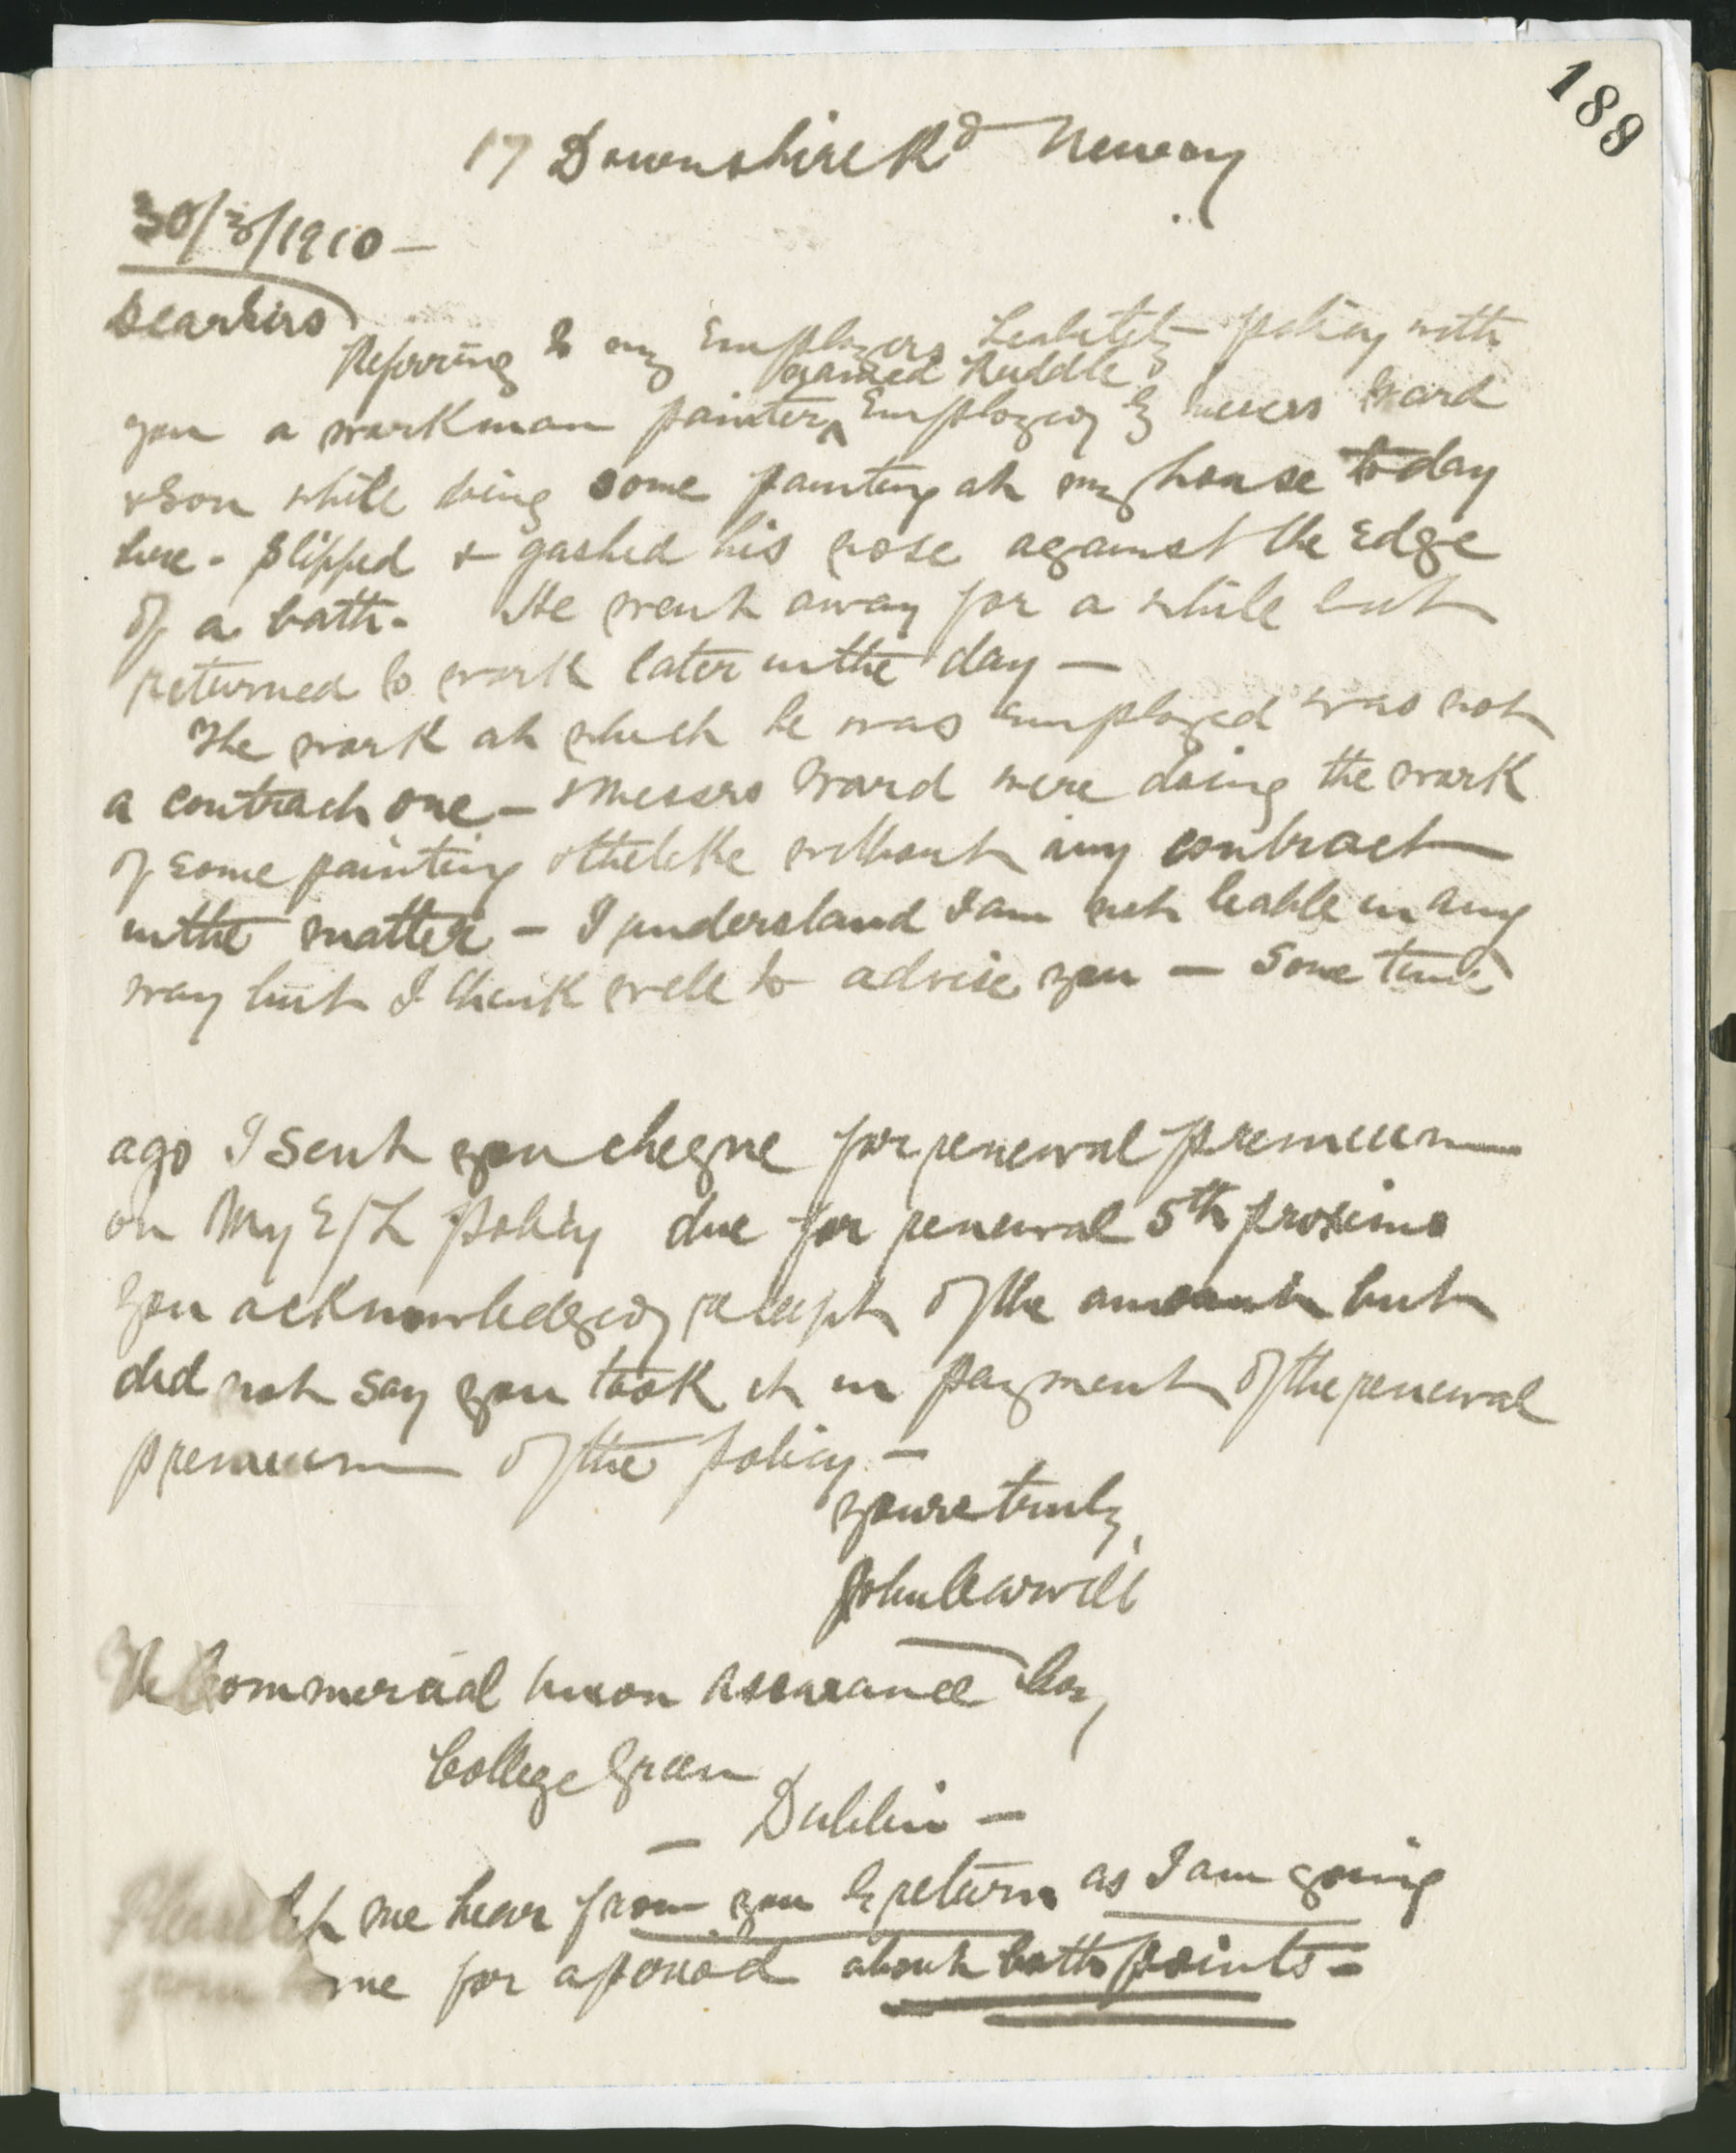 188
17 Downshire Rd Newry
30/3/1910 –
Dear Sirs
Referring to my Employers Liability policy with
named Ruddle
you a workman painter ^ Employed by Messrs Ward
& Son while doing some painting at my house today
here – slipped & gashed his nose against the Edge
of a bath – He went away for a while but
returned to work later in the day –
The work at which he was Employed was not
a contract one – Messrs Ward were doing the work
of some painting & the like without any contract
in the matter – I understand I am not liable in any
way but I think well to advise you – Some time
ago I sent you cheque for renewal premium
on My E/L policy due for renewal 5th proximo
you acknowledged receipt of the amount but
did not say you took it in payment of the renewal
premium of the policy –
yours truly
John
The Commercial Union Assurance Coy,
College Green
– Dublin –
Please let me hear from you by return as I am going
from home for a period about both points –